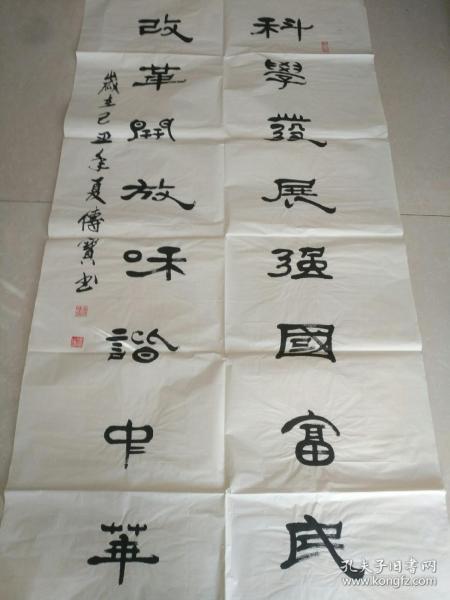 科學發展强國富民
改革開放和諧中華
歲在己丑年夏傳寶書
孔夫子旧书网
www.kongfz.com